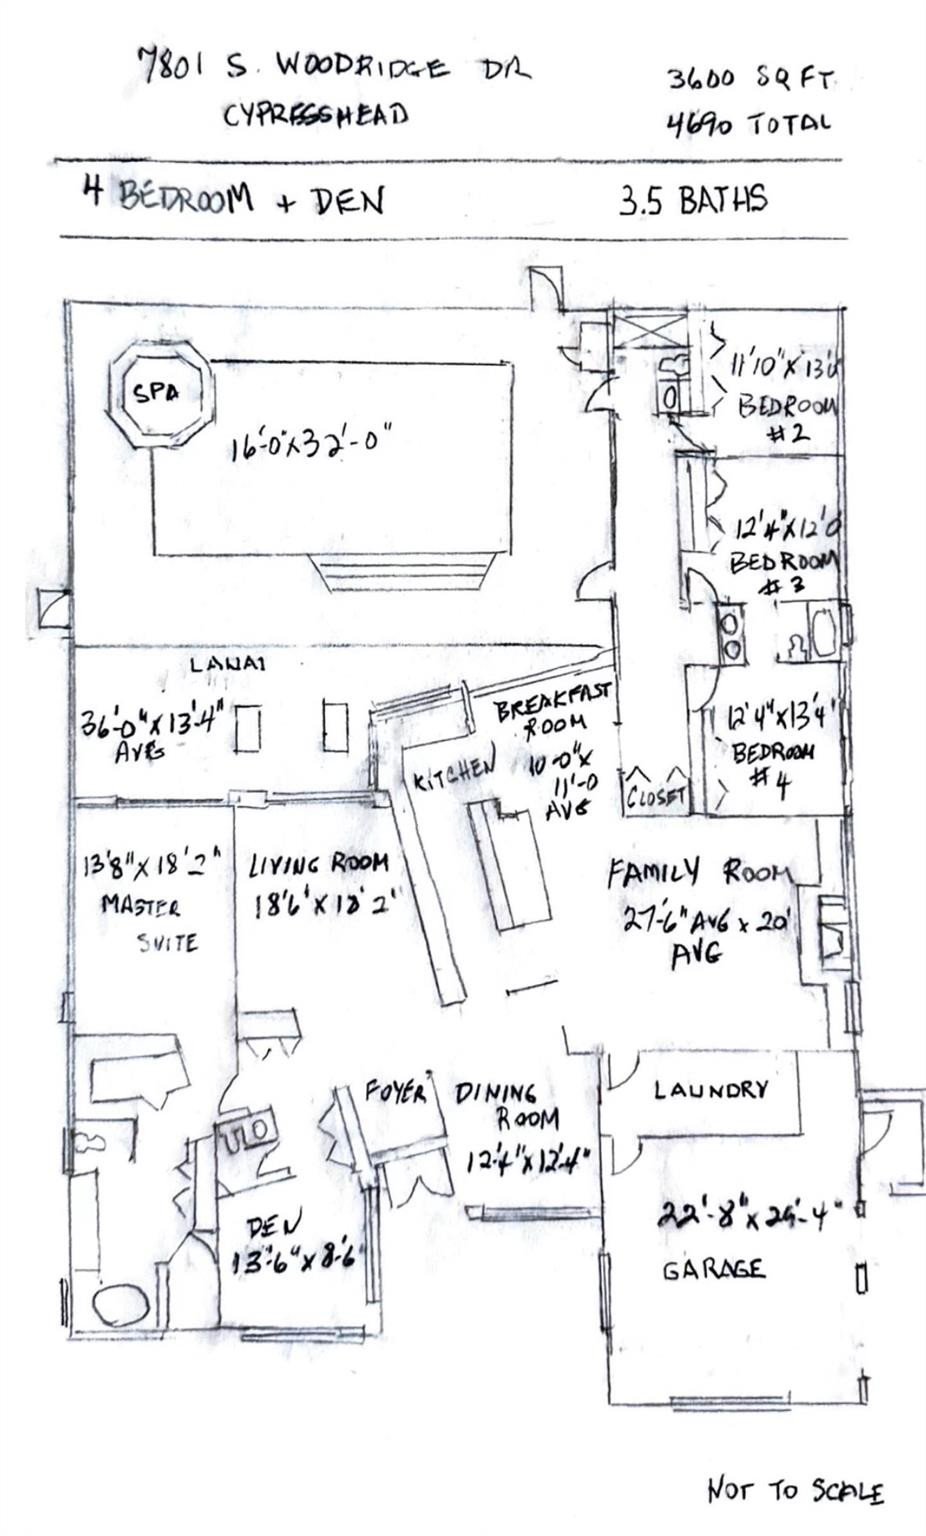 7801 S. WOODRIDGE DR
CYPRESSHEAD
3600 SQ FT.
4690 TOTAL
4 BEDROOM + DEN
3.5 BATHS
SPA
16'-0" X 32'-0"
11'10" X 13'0
BEDROOM
#2
12'4" X 12'0
BEDROOM
#3
LANAI
36'-0" X 13'-4"
AVG
BREAKFAST
ROOM
10-0" X
11'-0
AVG
KITCHEN
12'4" X 13'4"
BEDROOM
#4
CLOSET
13'8" X 18'2"
MASTER
SUITE
LIVING ROOM
18'6" X 18'2"
FAMILY ROOM
27'-6" AVG X 20'
AVG
FOYER
DINING
ROOM
12'-4" X 12'-4"
LAUNDRY
DEN
13'-6" X 8'-6"
GARAGE
NOT TO SCALE